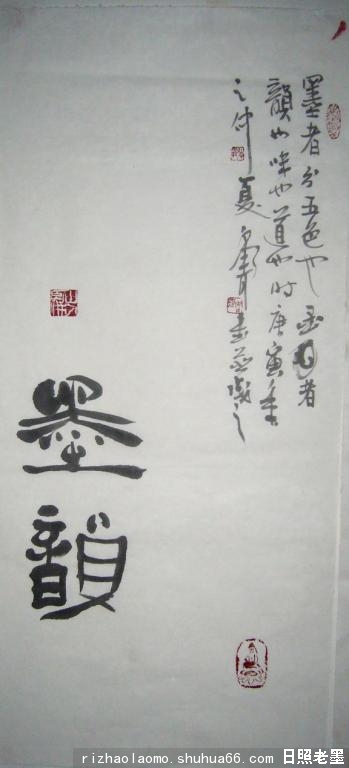 墨者分五色也 者
韻也味也道也时庚寅年
之仲夏 書並識之
墨韻
rizhaolaomo.shuhua66.com 日照老墨